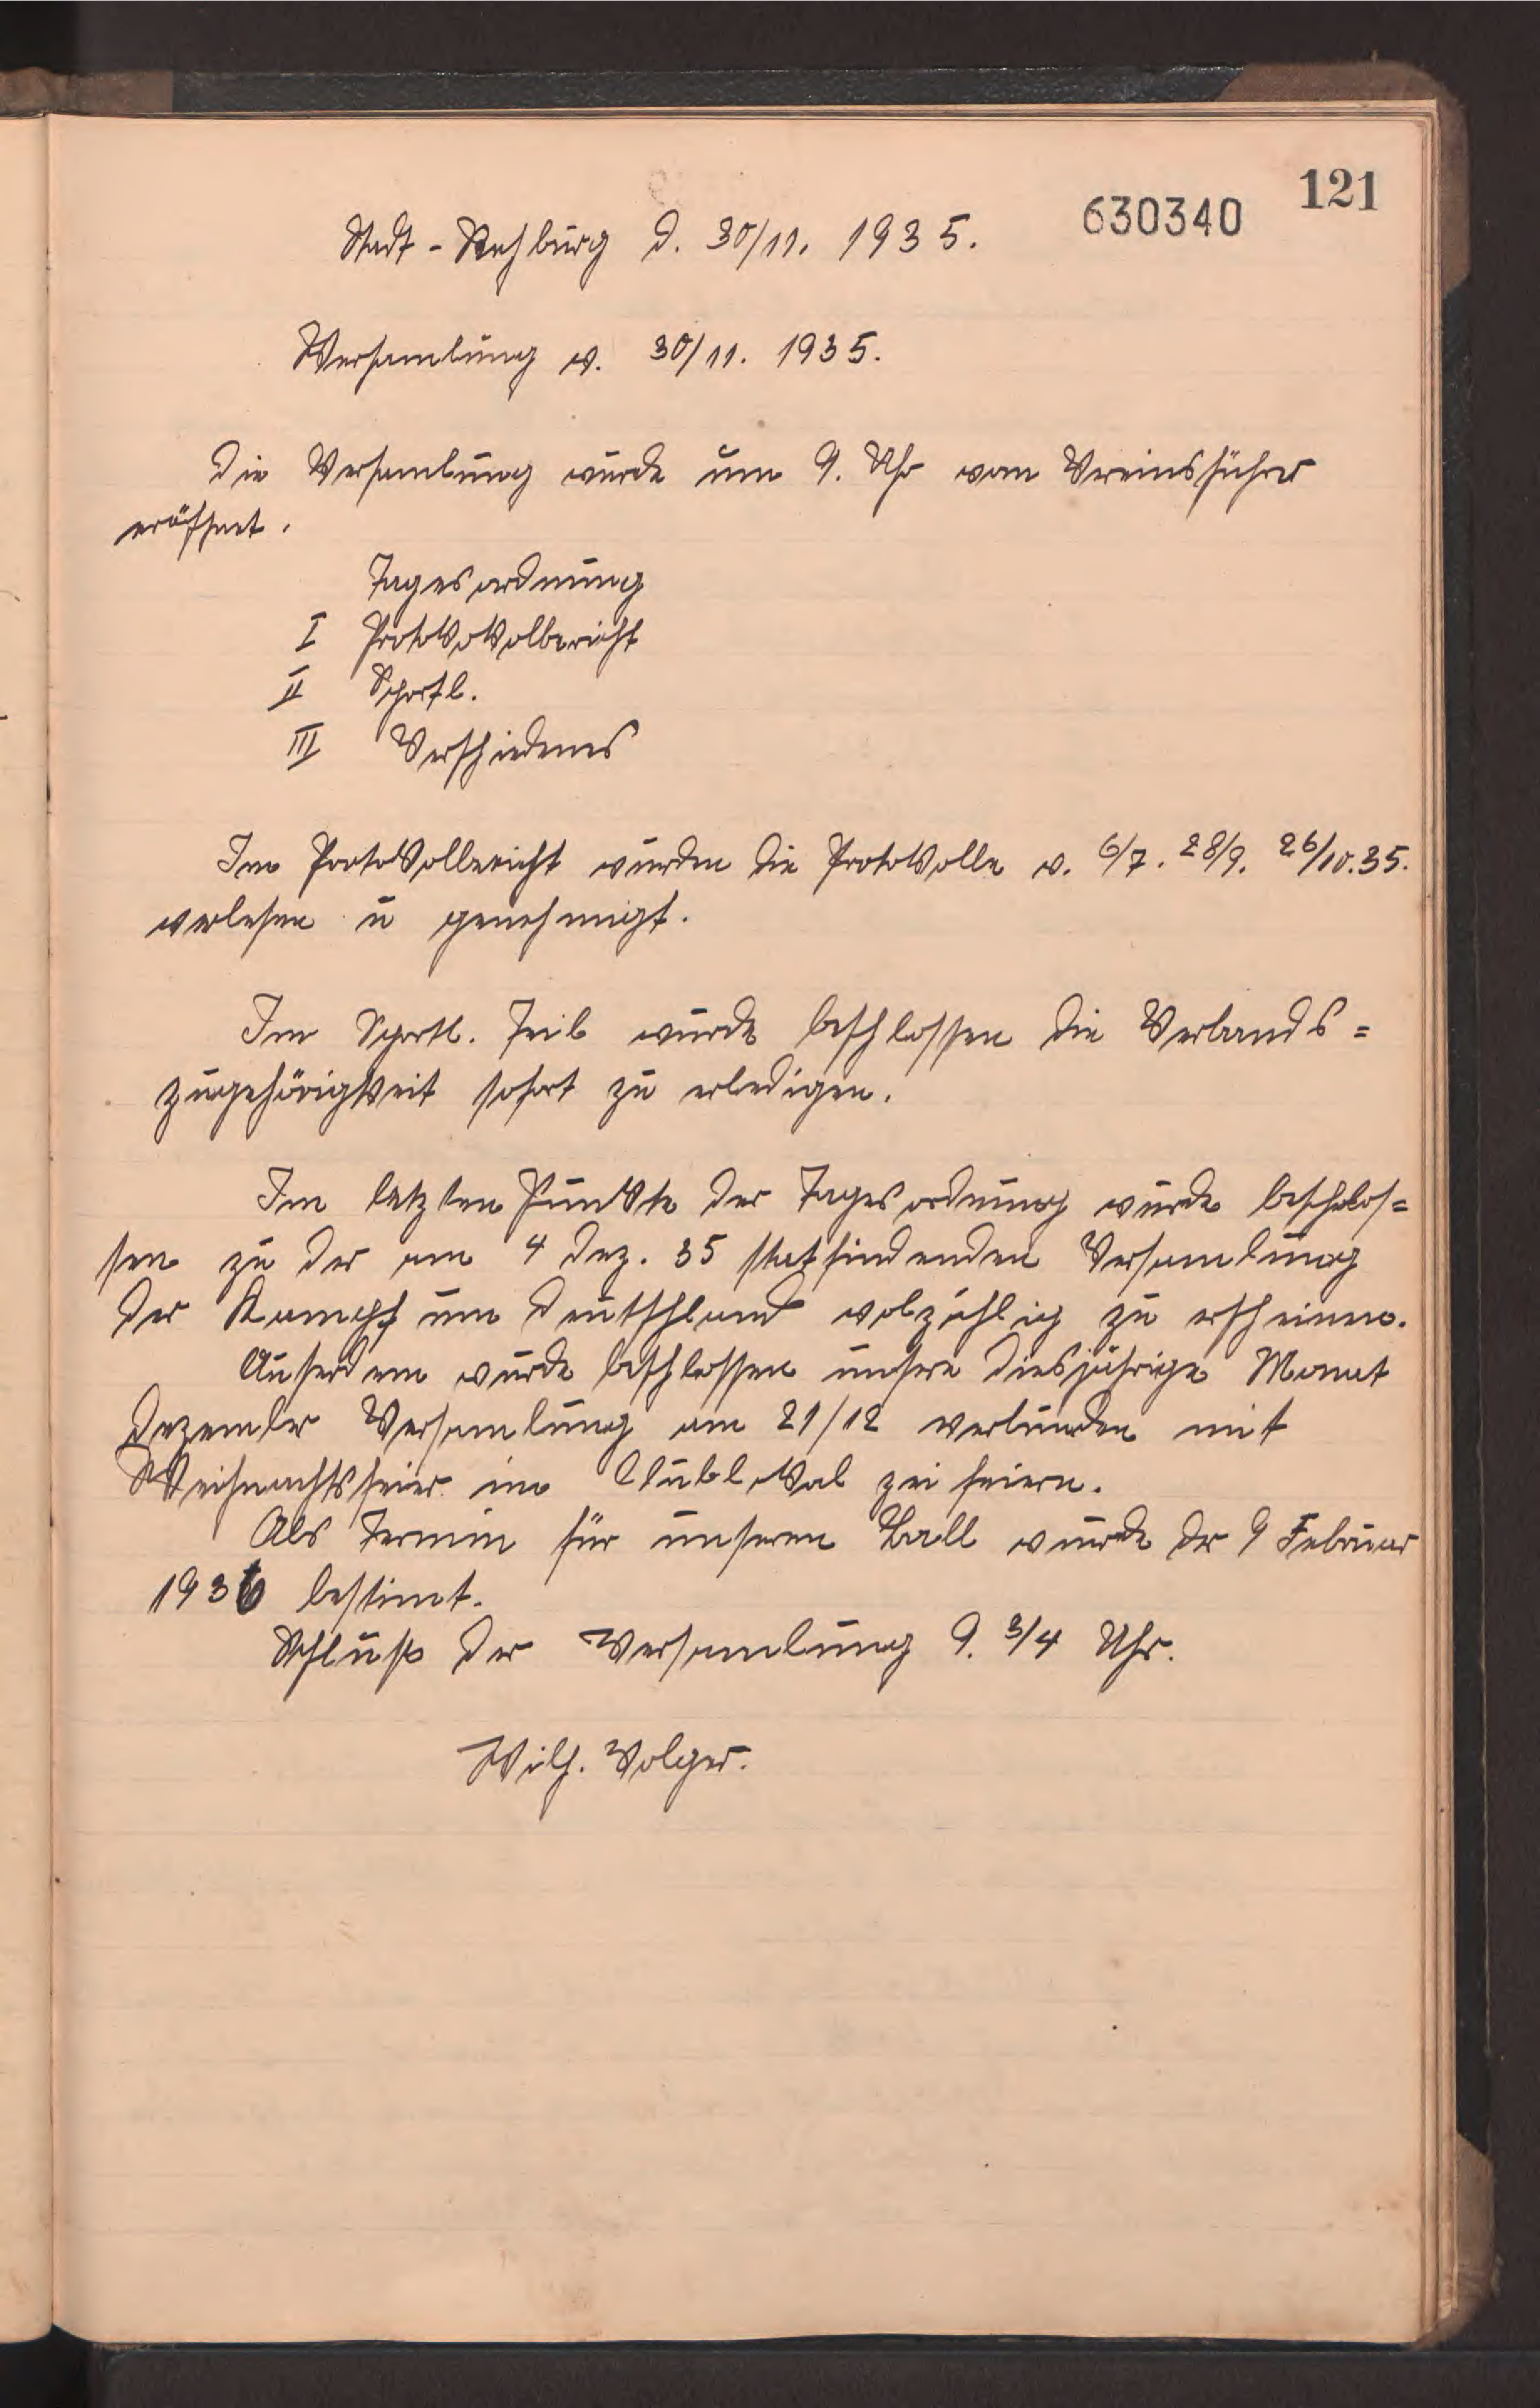 121
630340
Stadt-Rehburg d. 30/11. 1935.
Versamlung v. 30/11. 1935.
Die Versamlung wurde um 9. Uhr vom Vereinsführer
eröffnet.
Tagesordnung
I Protokokolbericht
II Sportl.
III Verschiedenes
Im Protokollbericht wurden die Protokolle v. 6/7. 28/9. 26/10.35.
verlesen u genehmigt.
Im Sportl. Teil wurde beschlossen die Verbands=
zugehörigkeit sofort zu erledigen.
Im letzten Punkte der Tagesordnung wurde beschlos=
sen zu der am 4 Dez. 35 statfindenden Versamlung
der Kampf um Deutschland volzählig zu erscheinen.
Auserdem wurde beschlossen unsere diesjährige Monat
Dezember Versamlung am 21/12 verbunden mit
Weihnachtsfeier im Clublokal zu feiern.
Als Termin für unseren Ball wurde der 9 Februar
1936 bestimt.
Schluß der Versamlung 9. 3/4 Uhr.
Wilh. Volger.